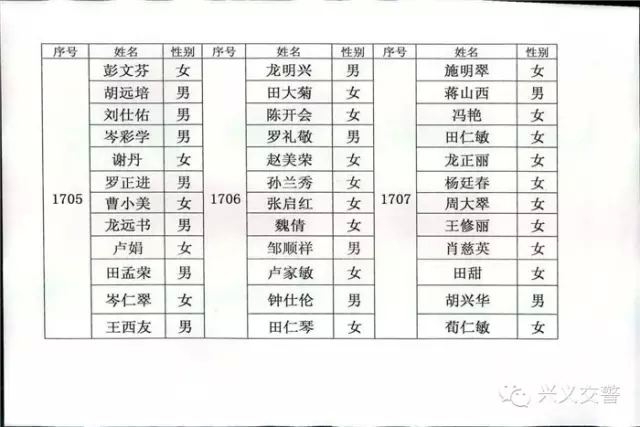 序号 姓名 性别 序号 姓名 性别 序号 姓名 性别
彭文芬 女 龙明兴 男 施明翠 女
胡远培 男 田大菊 女 蒋山西 男
刘仕佑 男 陈开会 女 冯艳 女
岑彩学 男 罗礼敬 男 田仁敏 女
谢丹 女 赵美荣 女 龙正丽 女
罗正进 男 孙兰秀 女 杨廷春 女
1705 曹小美 女 1706 张启红 女 1707 周大翠 女
龙远书 男 魏倩 女 王修丽 女
卢娟 女 邹顺祥 男 肖慈英 女
田孟荣 男 卢家敏 女 田甜 女
岑仁翠 女 钟仕伦 男 胡兴华 男
王西友 男 田仁琴 女 荀仁敏 女
兴义交警